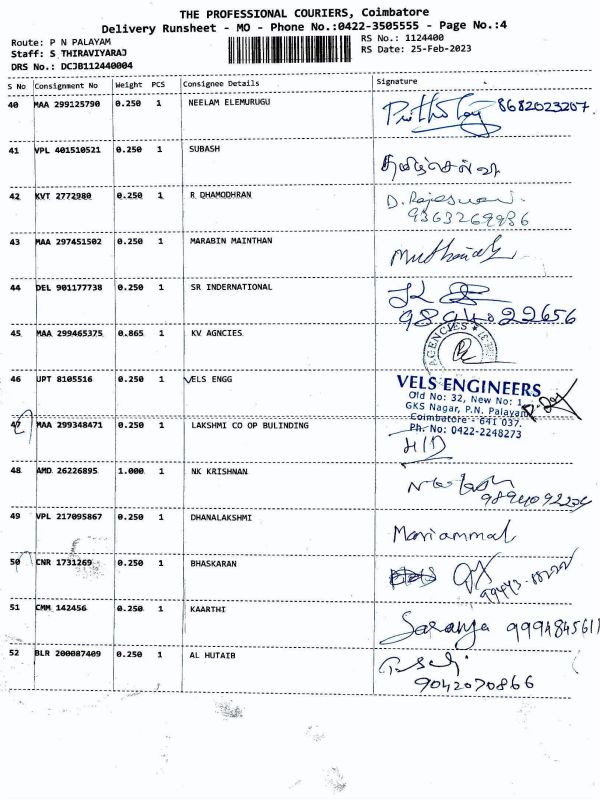 THE PROFESSIONAL COURIERS, Coimbatore
Delivery Runsheet - MO - Phone No.:0422-3505555 - Page No.:4
Route: P N PALAYAM
RS No.: 1124400
Staff: S THIRAVIYARAJ
RS Date: 25-Feb-2023
DRS No.: DCJB112440004
S No Consignment No Weight PCS Consignee Details Signature
40 MAA 299125790 0.250 1 NEELAM ELEMURUGU 8682023207
41 VPL 401510521 0.250 1 SUBASH தமிழ்செல்வி
42 KVT 2772980 0.250 1 R DHAMODHRAN D. Rajeswari
9363269986
43 MAA 297451502 0.250 1 MARABIN MAINTHAN
44 DEL 901177738 0.250 1 SR INDERNATIONAL
45 MAA 299465375 0.865 1 KV AGNCIES AGENCIES
46 UPT 8105516 0.250 1 VELS ENGG
VELS ENGINEERS
Old No: 32, New No: 1
GKS Nagar, P.N. Palayam
Coimbatore - 641 037.
Ph. No: 0422-2248273
47 MAA 299348471 0.250 1 LAKSHMI CO OP BULINDING H/D
48 AMD 26226895 1.000 1 NK KRISHNAN
49 VPL 217095867 0.250 1 DHANALAKSHMI Mariammal
50 CNR 1731269 0.250 1 BHASKARAN
51 CMM 142456 0.250 1 KAARTHI Saranya 9994845611
52 BLR 200087409 0.250 1 AL HUTAIB
9042070866